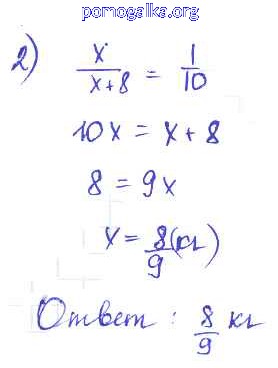 pomogalka.org
2) x/(x+8) = 1/10
10x = x + 8
8 = 9x
x = 8/9 (кг)
Ответ : 8/9 кг